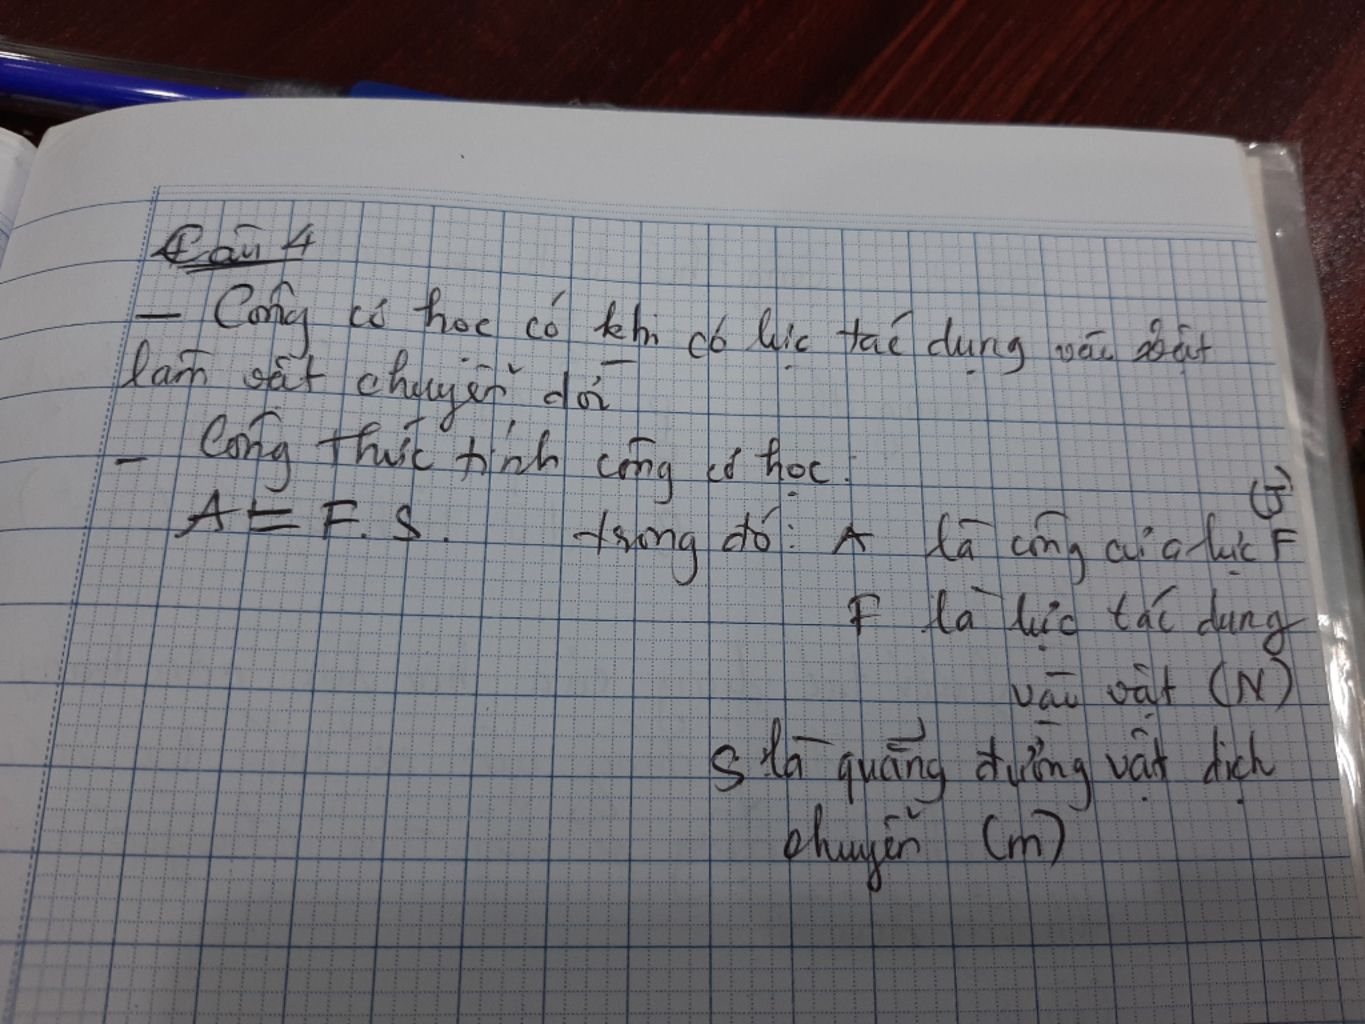 Câu 4
- Công cơ học có khi có lực tác dụng vào vật
làm vật chuyển dời
- Công thức tính công cơ học:
A = F. S. trong đó: A là công của lực F (J)
F là lực tác dụng
vào vật (N)
S là quãng đường vật dịch
chuyển (m)